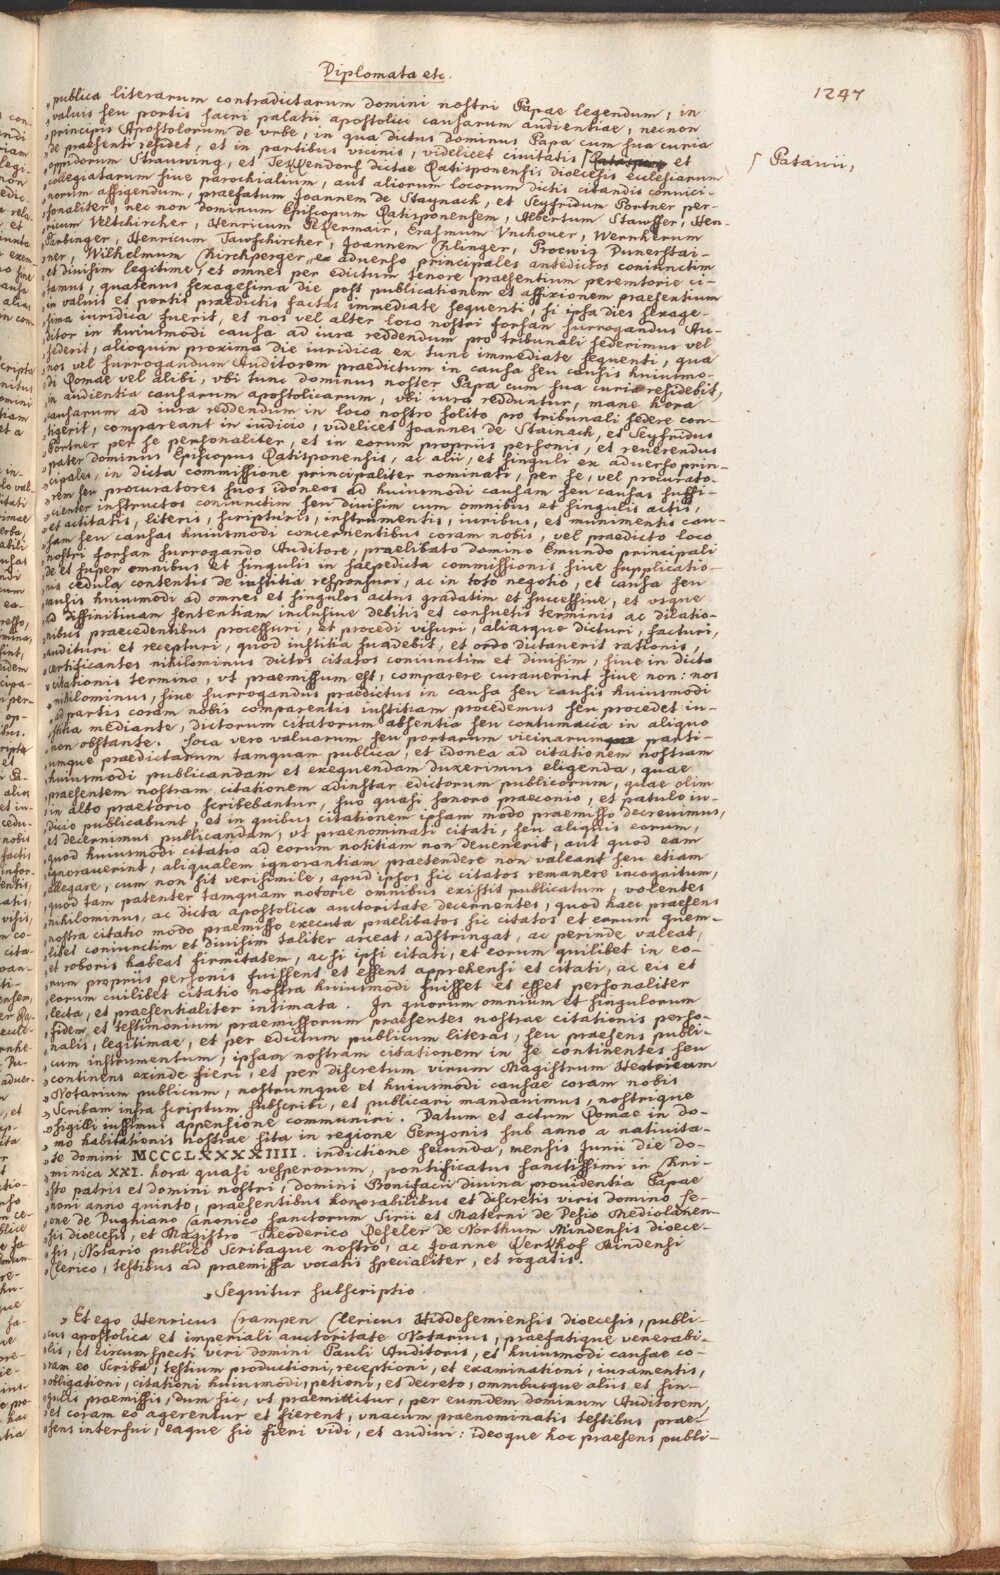 Diplomata etc.
1247
„publica literarum contradictarum domini nostri Papae legendum, in
„valuis seu portis sacri palatii apostolici causarum audientiae, necnon
„principis Apostolorum de vrbe, in qua dictus dominus Papa cum sua curia
„de praesenti residet, et in partibus vicinis, videlicet ciuitatis et
Patauii,
„oppidorum Strauwing, et dictae Ratisponensis dioecesis ecclesiarum
„collegiatarum siue parochialium, aut aliorum locorum dictis citandis conuici-
„norum affigendum, praefatum Joannem de Staynach, et Seyfridum Portner per-
„sonaliter, nec non dominum Episcopum Ratisponensem, Albertum Stauffer, Hen-
„ricum Veltkircher, Henricum Erasmum Vuchouer, Wernherum
Parbinger, Henricum Joannem Klinger,
„ner, Wilhelmum Kirchperger ex aduerso principales antedictos coniunctim
„et diuisim legitime, et omnes per edictum tenore praesentium peremtorie ci-
„tamus, quatenus sexagesima die post publicationem et affixionem praesentium
„in valuis et portis praedictis factas immediate sequenti, si ipsa dies sexage-
„sima iuridica fuerit, et nos vel alter loco nostri forsan surrogandus Au-
„ditor in huiusmodi causa ad iura reddendum pro tribunali sederimus vel
„sederit, alioquin proxima die iuridica ex tunc immediate sequenti, qua
„nos vel surrogandum Auditorem praedictum in causa seu causis huiusmo-
„di Romae vel alibi, vbi tunc dominus noster Papa cum sua curia residebit,
„in audientia causarum apostolicarum, vbi iura redduntur, mane hora
„causarum ad iura reddendum in loco nostro solito pro tribunali sedere con-
„tigerit, compareant in iudicio, videlicet Joannes de Stainach, et Seyfridus
„Portner per se personaliter, et in eorum propriis personis, et reuerendus
„pater dominus Episcopus Ratisponensis, ac alii, et singuli ex aduerso prin-
„cipales, in dicta commissione principaliter nominati, per se, vel procurato-
„rem seu procuratores suos idoneos ad huiusmodi causam seu causas suffi-
„cienter instructos coniunctim seu diuisim cum omnibus et singulis actis,
„et actitatis, literis, scripturis, instrumentis, iuribus, et munimentis cau-
„sam seu causas huiusmodi concernentibus coram nobis, vel praedicto loco
„nostri forsan surrogando Auditore, praelibato domino Emundo principali
„de et super omnibus et singulis in saepedicta commissionis siue supplicatio-
„nis cedula contentis de iustitia responsuri, ac in toto negotio, et causa seu
„causis huiusmodi ad omnes et singulos actus gradatim et successiue, et vsque
„ad diffinitiuam sententiam inclusiue debitis et consuetis terminis ac dilatio-
„nibus praecedentibus processuri, et procedi visuri, aliasque dicturi, facturi,
„audituri et recepturi, quod iustitia suadebit, et ordo dictauerit rationis,
„certificantes nihilominus dictos citatos coniunctim et diuisim, siue in dicto
„citationis termino, vt praemissum est, comparere curauerint siue non: nos
„nihilominus, siue surrogandus praedictus in causa seu causis huiusmodi
„ad partis coram nobis comparentis iustitiam procedemus seu procedet iu-
„stitia mediante, dictorum citatorum absentia seu contumacia in aliquo
„non obstante. Loca vero valuarum seu portarum vicinarum parti-
„umque praedictarum tamquam publica, et idonea ad citationem nostram
„huiusmodi publicandam et exequendam duxerimus eligenda, quae
„praesentem nostram citationem adinstar edictorum publicorum, quae olim
„in albo praetorio scribebantur, suo quasi sonoro praeconio, et patulo in-
„dicio publicabunt, et in quibus citationem ipsam modo praemisso decreuimus,
„et decernimus publicandam, vt praenominati citati, seu aliquis eorum,
„quod huiusmodi citatio ad eorum notitiam non deuenerit, aut quod eam
„ignorauerint, aliqualem ignorantiam praetendere non valeant seu etiam
„allegare, cum non sit verisimile, apud ipsos sic citatos remanere incognitum,
„quod tam patenter tamquam notorie omnibus existit publicatum, volentes
„nihilominus, ac dicta apostolica auctoritate decernentes, quod haec praesens
„nostra citatio modo praemisso executa praelibatos sic citatos et eorum quem-
„libet coniunctim et diuisim taliter arceat, adstringat, ac perinde valeat,
„et roboris habeat firmitatem, ac si ipsi citati, et eorum quilibet in eo-
„rum propriis personis fuissent et essent apprehensi et citati, ac eis et
„eorum cuilibet citatio nostra huiusmodi fuisset et esset personaliter
„lecta, et praesentialiter intimata. In quorum omnium et singulorum
„fidem et testimonium praemissorum praesentes nostrae citationis perso-
„nalis, legitimae, et per edictum publicum literas, seu praesens publi-
„cum instrumentum, ipsam nostram citationem in se continentes seu
„continens exinde fieri, et per discretum virum Magistrum Henricum
„Notarium publicum, nostrumque et huiusmodi causae coram nobis
„Scribam infra scriptum subscribi, et publicari mandauimus, nostrique
„sigilli iussimus appensione communiri. Datum et actum Romae in do-
„mo habitationis nostrae sita in regione Peryonis sub anno a natiuita-
„te domini MCCCLXXXXIIII. indictione secunda, mensis Junii die do-
„minica XXI. hora quasi vesperorum, pontificatus sanctissimi in Chri-
„sto patris et domini nostri, domini Bonifacii diuina prouidentia Papae
„noni anno quinto, praesentibus honorabilibus et discretis viris domino Le-
„one de Dugniano Canonico sanctorum Sirii et Materni de Desio Mediolanen-
„sis dioecesis, et Magistro Theoderico Reseler de Northum Mindensis dioece-
„sis, Notario publico Scribaque nostro, ac Joanne Verkhof Mindensi
„Clerico, testibus ad praemissa vocatis specialiter, et rogatis.
„Sequitur subscriptio.
„Et ego Henricus Crampen Clericus Hiddesemiensis dioecesis, publi-
„cus apostolica et imperiali auctoritate Notarius, praefatique venerabi-
„lis, et circumspecti viri domini Pauli Auditoris, et huiusmodi causae co-
„ram eo Scriba, testium productioni, receptioni, et examinationi, iuramentis,
„obligationi, citationi huiusmodi, petioni, et decreto, omnibusque aliis et sin-
„gulis praemissis, dum sic, vt praemittitur, per eumdem dominum Auditorem,
„et coram eo agerentur et fierent, vnacum praenominatis testibus prae-
„sens interfui, eaque sic fieri vidi, et audiui: ideoque hoc praesens publi-